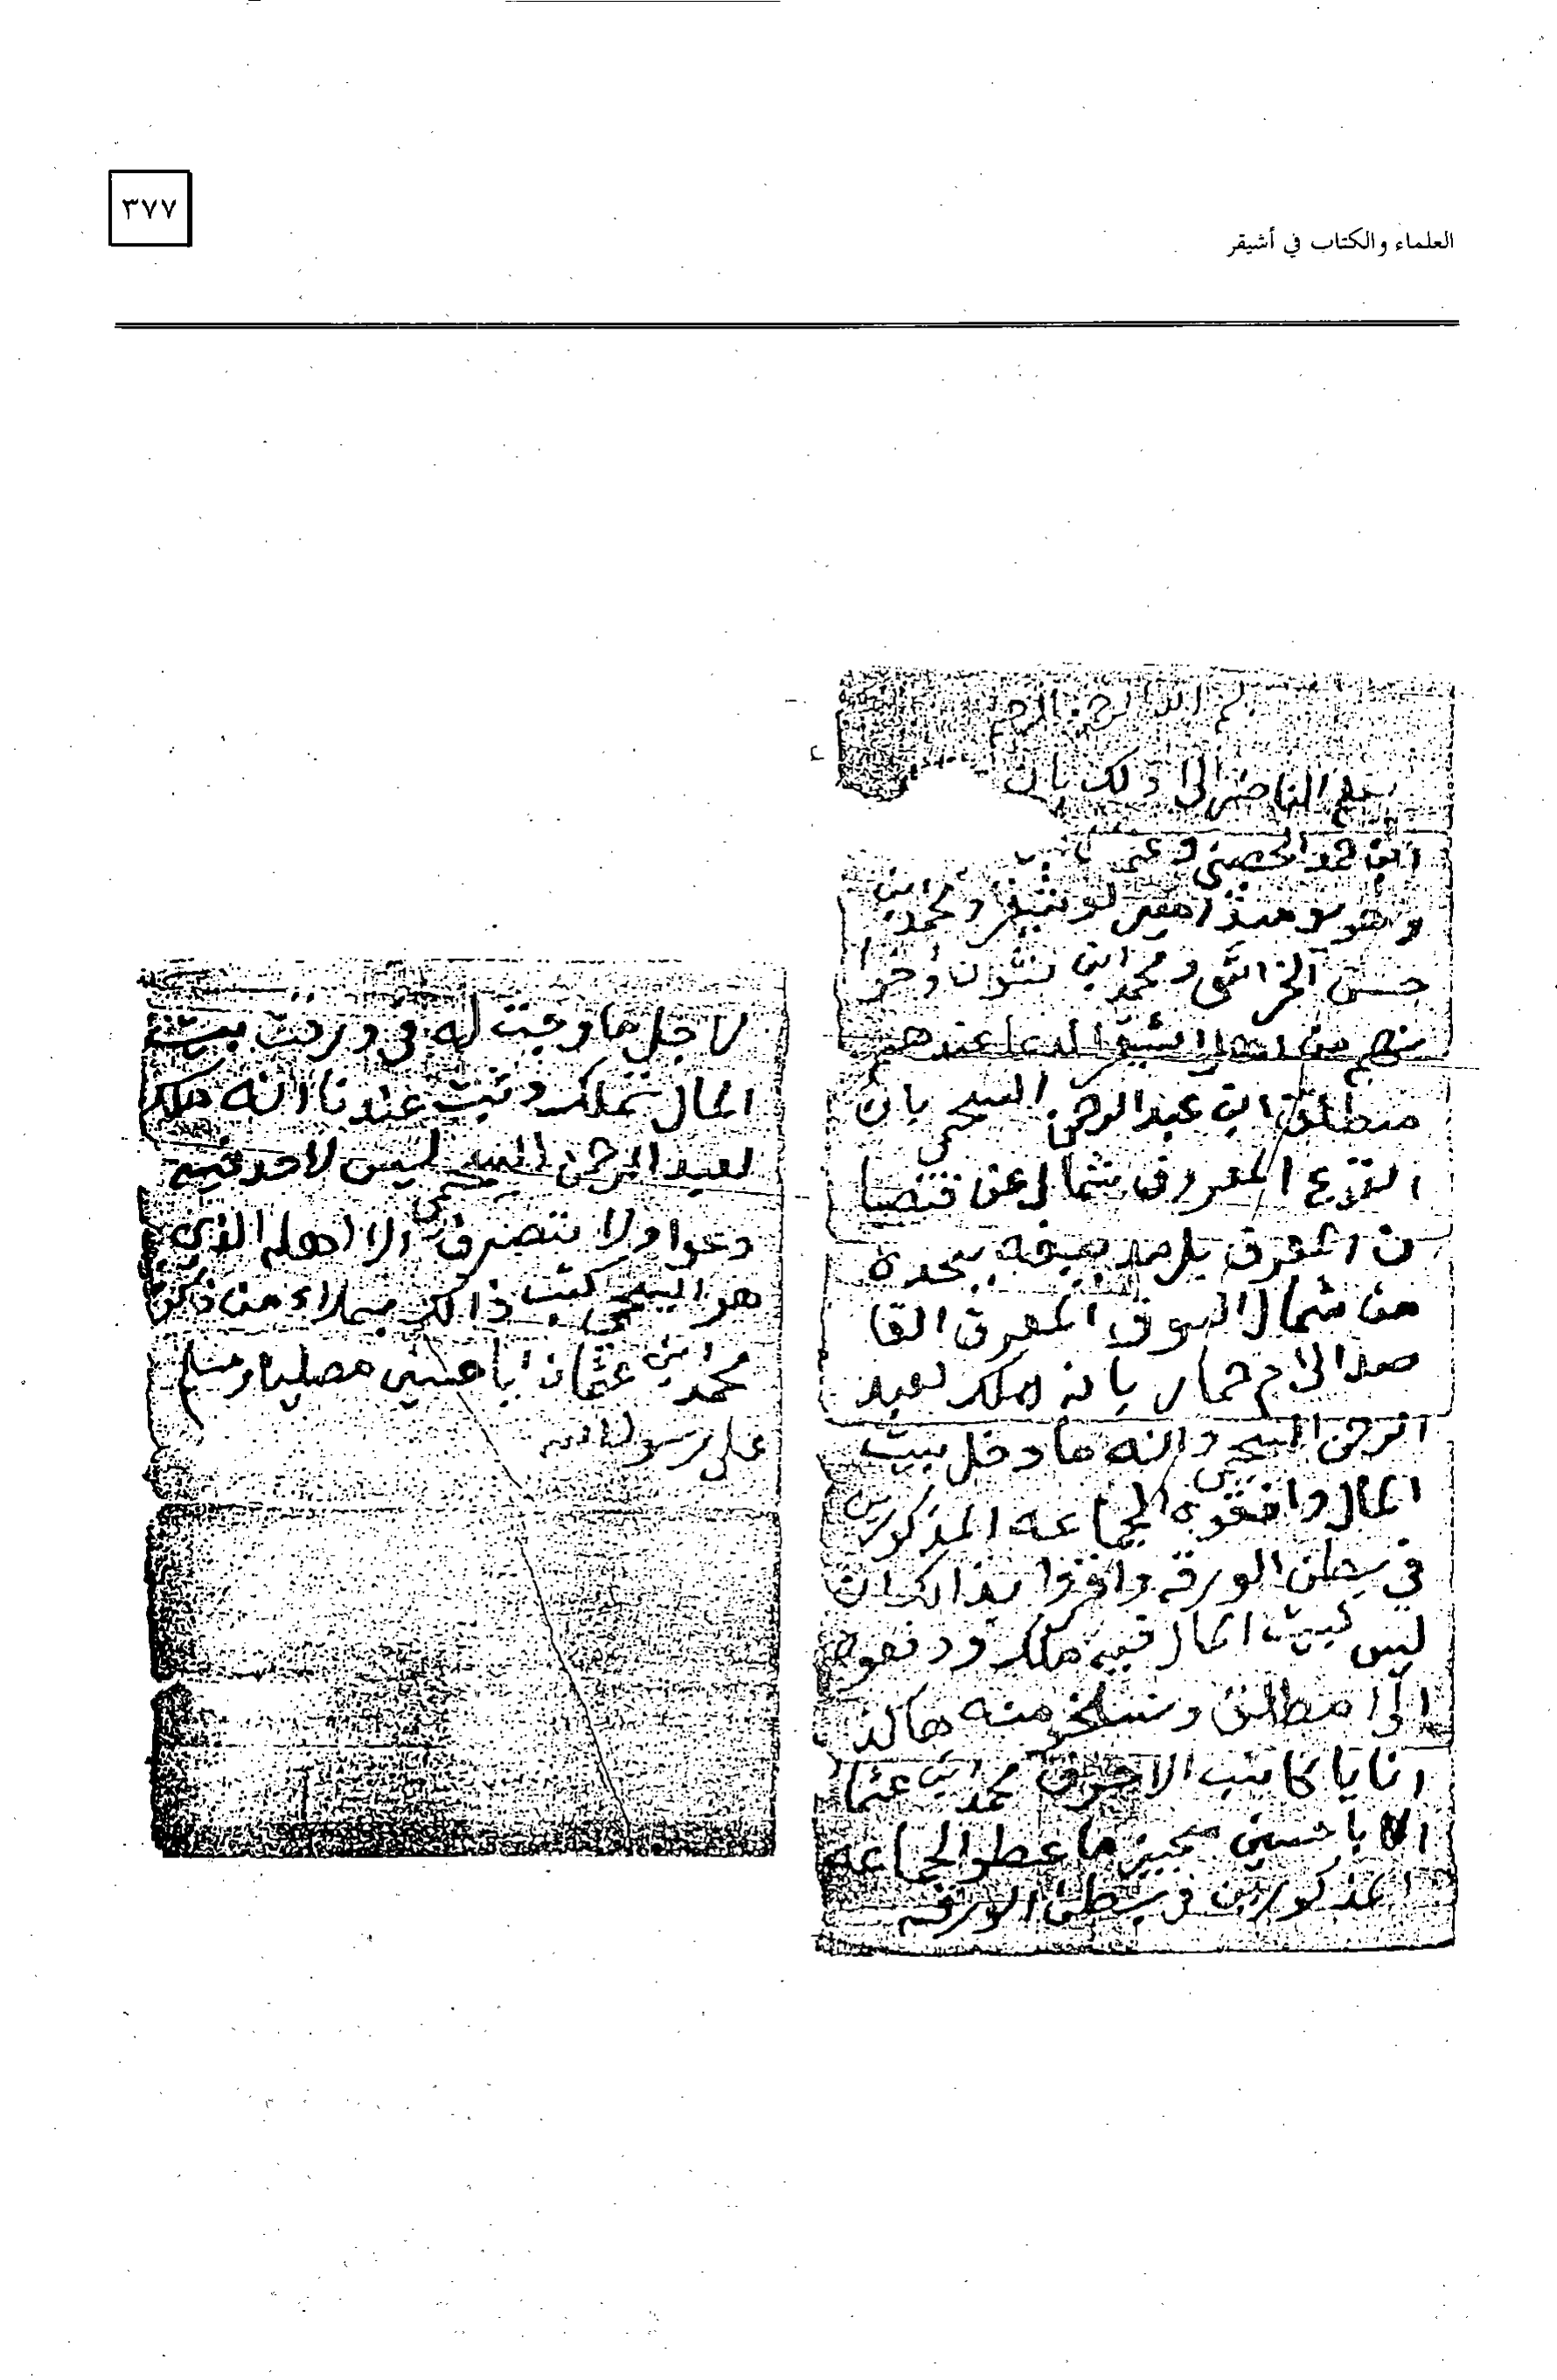 ٣٧٧
العلماء والكتاب في أشيقر
بسم الله الرحمن الرحيم
يعلم الناضر الى ذلك بان
ابن حمد الحصيني
وهو يومئذ امير لوشيقر ومحمد ابن
حسن الخراشي ومحمد ابن نشوان
منهم من اهل اشيقر ادعا عندهم
مطلق ابن عبد الرحمن السحيمي بان
القرع المعروف شمال عن
ن المفرق
من شمال السوق المفرق القا
صد الى ام حمار بانه ملك لعبد
الرحمن السحيمي وانه ما دخل بيت
المال وافقوه الجماعه المذكورين
في بطن الورقه واقروا بذالك ان
ليس لبيت المال فيه ملك ودفعوه
الى مطلق
انايا كاتب الاحرف محمد ابن عثما
ابا حسين مجيز ما عطو الجماعه
المذكورين في بطن الورقه
لاجل ما وجبت له في ورقت بيت
المال تملك وثبت عندنا انه ملك
لعبد الرحمن السحيمي ليس لاحد فيه
دعوا ولا تتصرف الا اهله الذي
هو السحيمي كتبت ذالك بملاء من ذكر
محمد ابن عثمان ابا حسين مصليا ومسلم
على رسول الله